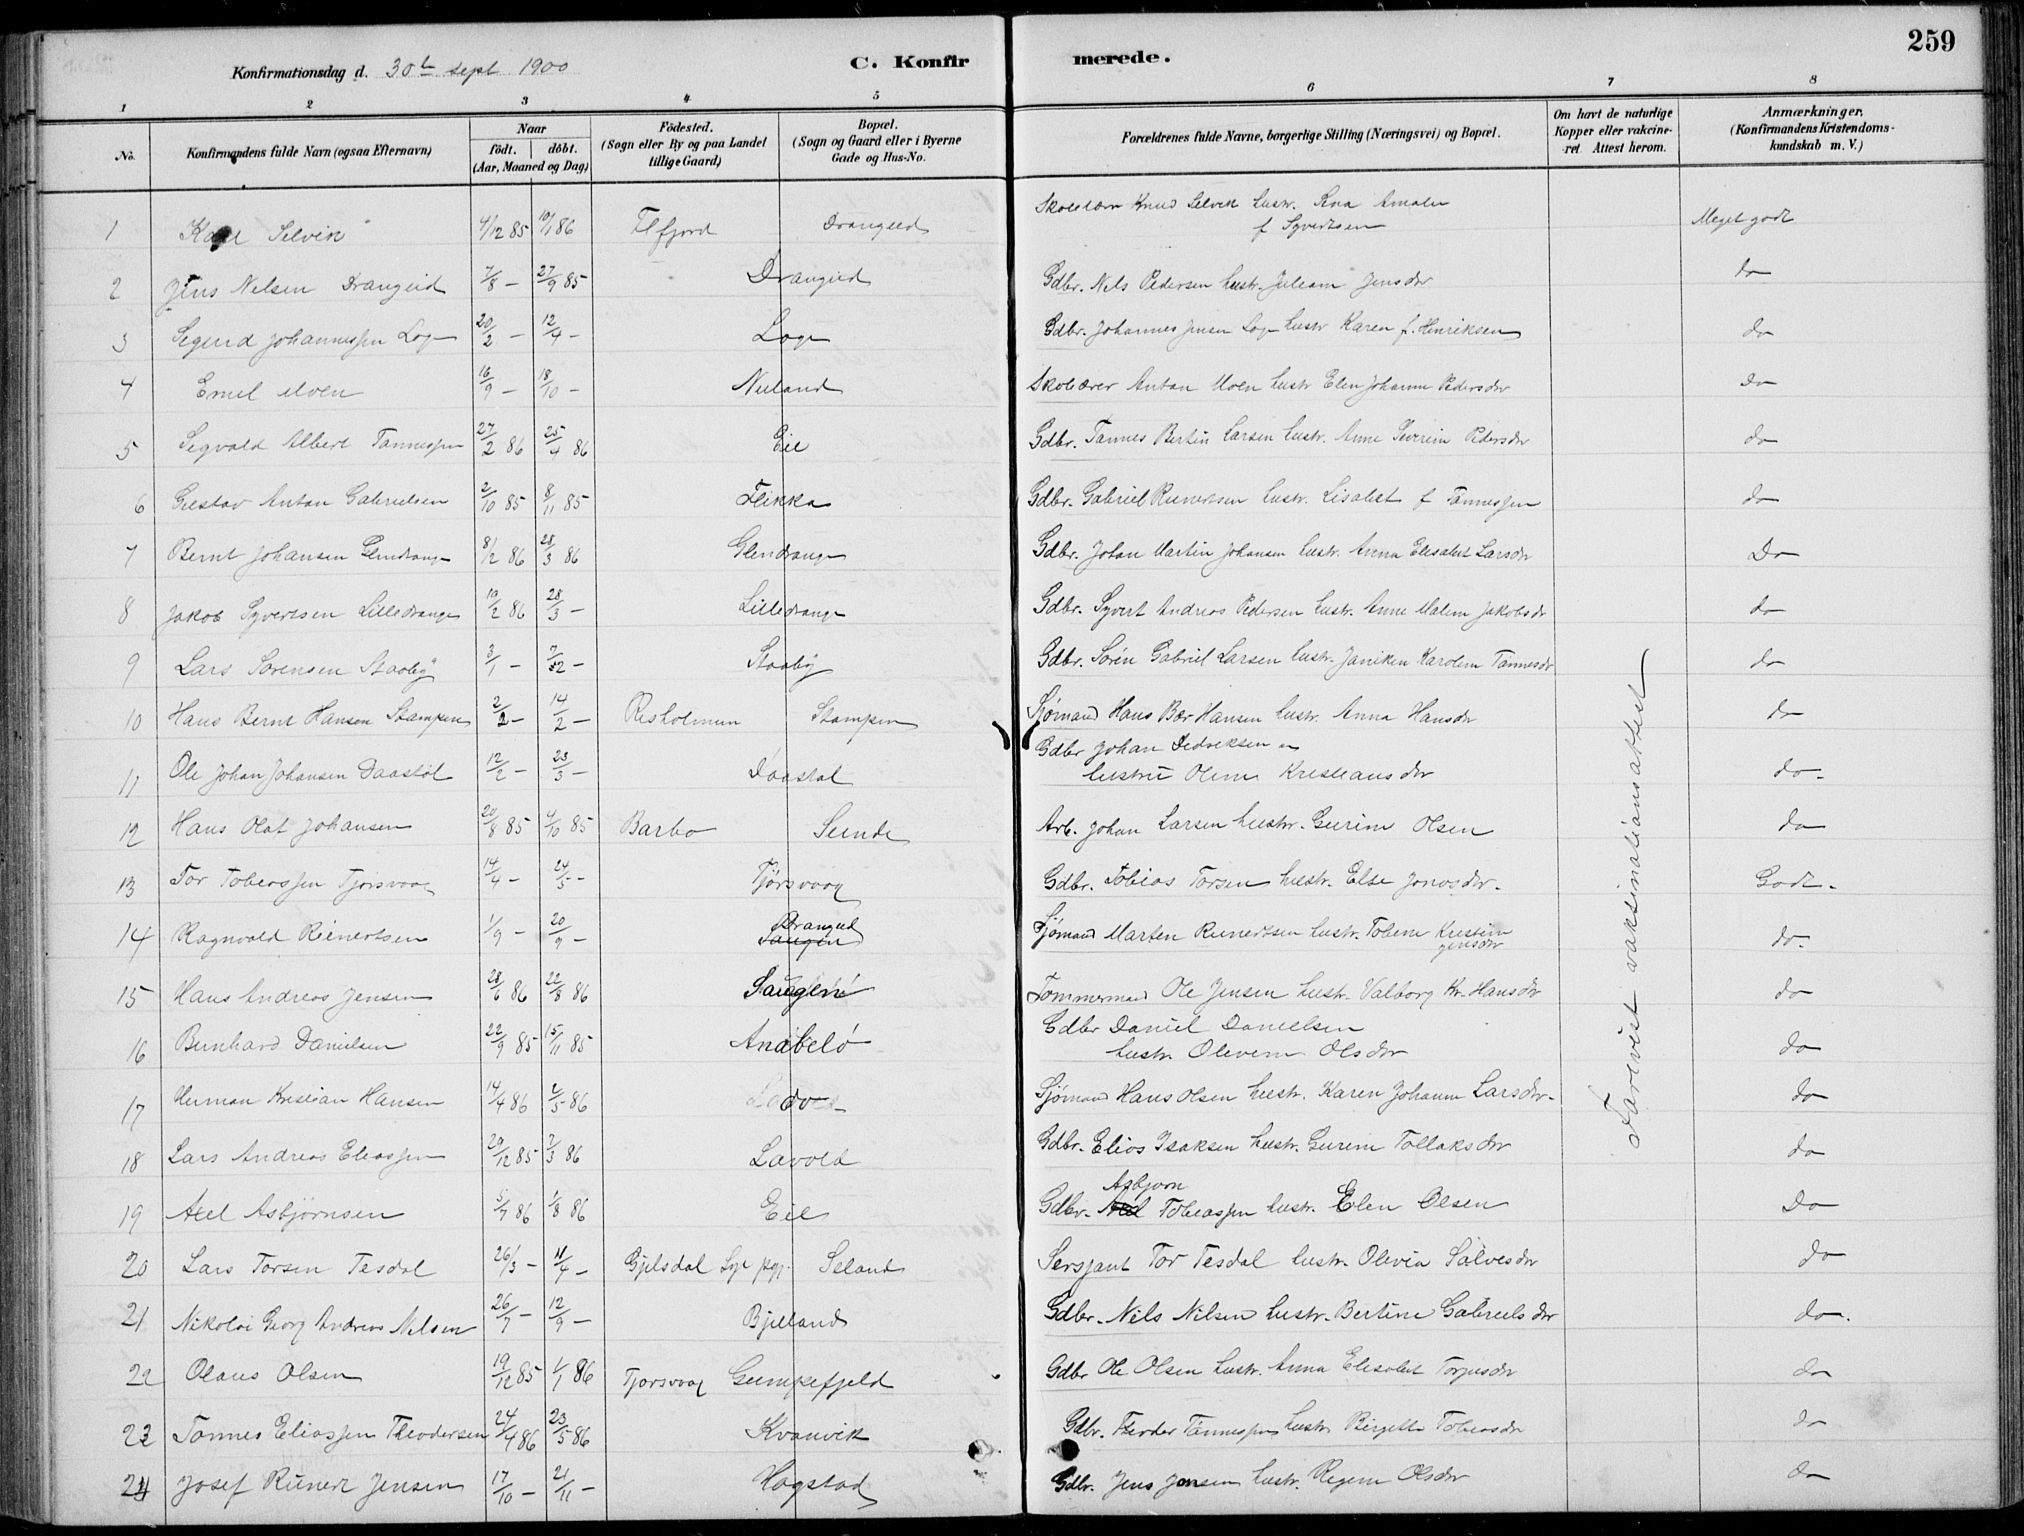 259
Konfirmationsdag d. 30te sept 1900 C. Konfirmerede.
1 2 3 4 5 6 7 8
No. Konfirmandens fulde Navn (ogsaa Efternavn) Naar födt. döbt. (Aar, Maaned og Dag) Födested. (Sogn eller By og paa Landet tillige Gaard) Bopæl. (Sogn og Gaard eller i Byerne Gade og Hus-No. Forældrenes fulde Navne, borgerlige Stilling (Næringsvei) og Bopæl. Om havt de naturlige Kopper eller vakcineret. Attest herom. Anmærkninger, (Konfirmandens Kristendomskundskab m. V.)
1 Karl Selvik 4/12 85 10/1 86 Flfjord Drangeid Skolelærer Knud Selvik hustr. Amalie f Syvertsen Meget godt
2 Jens Nilsen Drangeid 7/8 – 27/9 85 Drangeid Gdbr. Nils Pedersen hustr. Juliane Jensdtr do
3 Sigurd Johannessen Loge 20/2 – 12/4 – Loge Gdbr. Johannes Jensen Loge hustr Karen f. Henriksen do
4 Emil Moen 16/9 – 18/10 – Nuland Skolelærer Anton Moen hustr Elen Johanne Pedersdtr do
5 Sigvald Albert Tønnessen 27/2 86 25/4 86 Eie Gdbr. Tønnes Bertin Larsen hustr. Anne Severine Pedersdtr do
6 Gustav Anton Gabrielsen 2/10 85 8/11 85 Flikka Gdbr. Gabriel Reinertsen hustr. Lisabet f Tønnessen do
7 Bernt Johansen Glendrange 8/2 86 28/3 86 Glendrange Gdbr. Johan Martin Johansen hustr. Anna Elisabet Larsdtr Do
8 Jakob Syvertsen Lilledrange 19/2 86 28/3 – Lilledrange Gdbr. Syvert Andreas Pedersen hustr. Anne Malene Jakobsdtr do
9 Lars Sørensen Staaby 3/1 – 7/2 – Staaby Gdbr. Sørén Gabriel Larsen hustr. Janiken Karoline Tønnesdtr do
10 Hans Bernt Hansen Stampen 2/2 – 14/2 – Risholmen Stampen Sjømand Hans Hansen hustr. Anna Hansdtr do
11 Ole Johan Johansen Daastøl 12/2 – 23/3 – Daastøl Gdbr Johan Dedriksen hustru Oline Kristiansdtr do.
12 Hans Olaf Johansen 20/8 85 4/10 85 Barbo Sunde Arb. Johan Larsen hustr. Gurine Olsen do
13 Tor Tobiassen Tjørsvaag 14/4 – 24/5 – Tjørsvaag Gdbr. Tobias Torsen hustr. Else Jonasdtr. Godt.
14 Ragnvald Reinertsen 1/9 – 20/9 – Drangeid Saugen Sjømand Marten Reinertsen hustr. Tobine Kristine Jensdtr do.
15 Hans Andreas Jensen 28/6 86 22/8 86 Saugen Tømmermand Ole Jensen hustr. Valborg Kr. Hansdtr do
16 Bernhard Danielsen 22/9 85 15/11 85 Anabelø Gdbr Daniel Danielsen hustr. Olevine Olsdtr do
17 Herman Kristian Hansen 14/4 86 2/5 86 Sjømand Hans Olsen hustr. Karen Johanne Larsdtr. do
18 Lars Andreas Eliassen 29/12 85 7/3 86 Lavold Gdbr. Elias Isaksen hustr. Gurine Tollaksdtr do
19 Axel Asbjørnsen 5/7 86 1/8 86 Eie Gdbr. Asbjørn Tobiassen hustr. Elen Olsen Do
20 Lars Torsen Tesdal 26/3 – 11/4 – Gjelsdal Seland Sersjant Tor Tesdal hustr. Olivia Sálvesdtr do
21 Nikolai Georg Andreas Nilsen 26/7 – 12/9 – Bjelland Gdbr. Nils Nilsen hustr. Bertine Gabrielsdtr do.
22 Olaus Olsen 19/12 85 1/1 86 Tjørsvaag Gumpefjeld Gdbr Ole Olsen hustr. Anna Elisabet Torjusdtr do
23 Tønnes Eliassen Theodorsen 24/4 86 23/5 86 Kvanvik Gdbr. Theodor Tønnessen hustr Birgitte Tobiasdtr do
24 Josef Reinert Jensen 17/10 – 21/11 – Hogstad Gdbr. Jens Jensen hustr. Regine Olsdtr do
Forevist vaksinationsattest